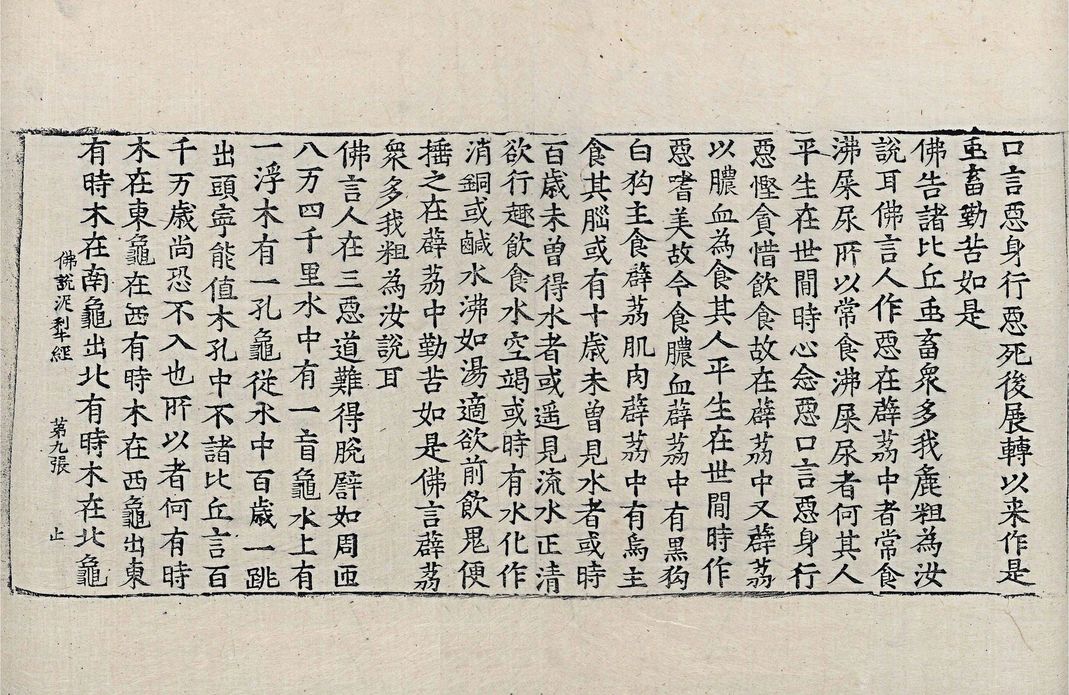 口言惡身行惡死後展轉以来作是
䖝畜勤苦如是
佛告諸比丘䖝畜衆多我麁粗為汝
說耳佛言人作惡在薜荔中者常食
沸屎尿所以常食沸屎尿者何其人
平生在世間時心念惡口言惡身行
惡慳貪惜飲食故在薜荔中又薜荔
以膿血為食其人平生在世間時作
惡嗜美故今食膿血薜荔中有黒狗
白狗主食薜荔肌肉薜荔中有烏主
食其腦或有十歳未曽見水者或時
百歳未曽得水者或遥見流水正清
欲行趣飲食水空竭或時有水化作
消銅或鹹水沸如湯適欲前飲鬼便
捶之在薜荔中勤苦如是佛言薜荔
衆多我粗為汝說耳
佛言人在三惡道難得脫譬如周匝
八万四千里水中有一盲龜水上有
一浮木有一孔龜從水中百歳一跳
出頭寧能值木孔中不諸比丘言百
千万歳尚恐不入也所以者何有時
木在東龜在西有時木在西龜出東
有時木在南龜出北有時木在北龜
佛說泥犁經 第九張 止